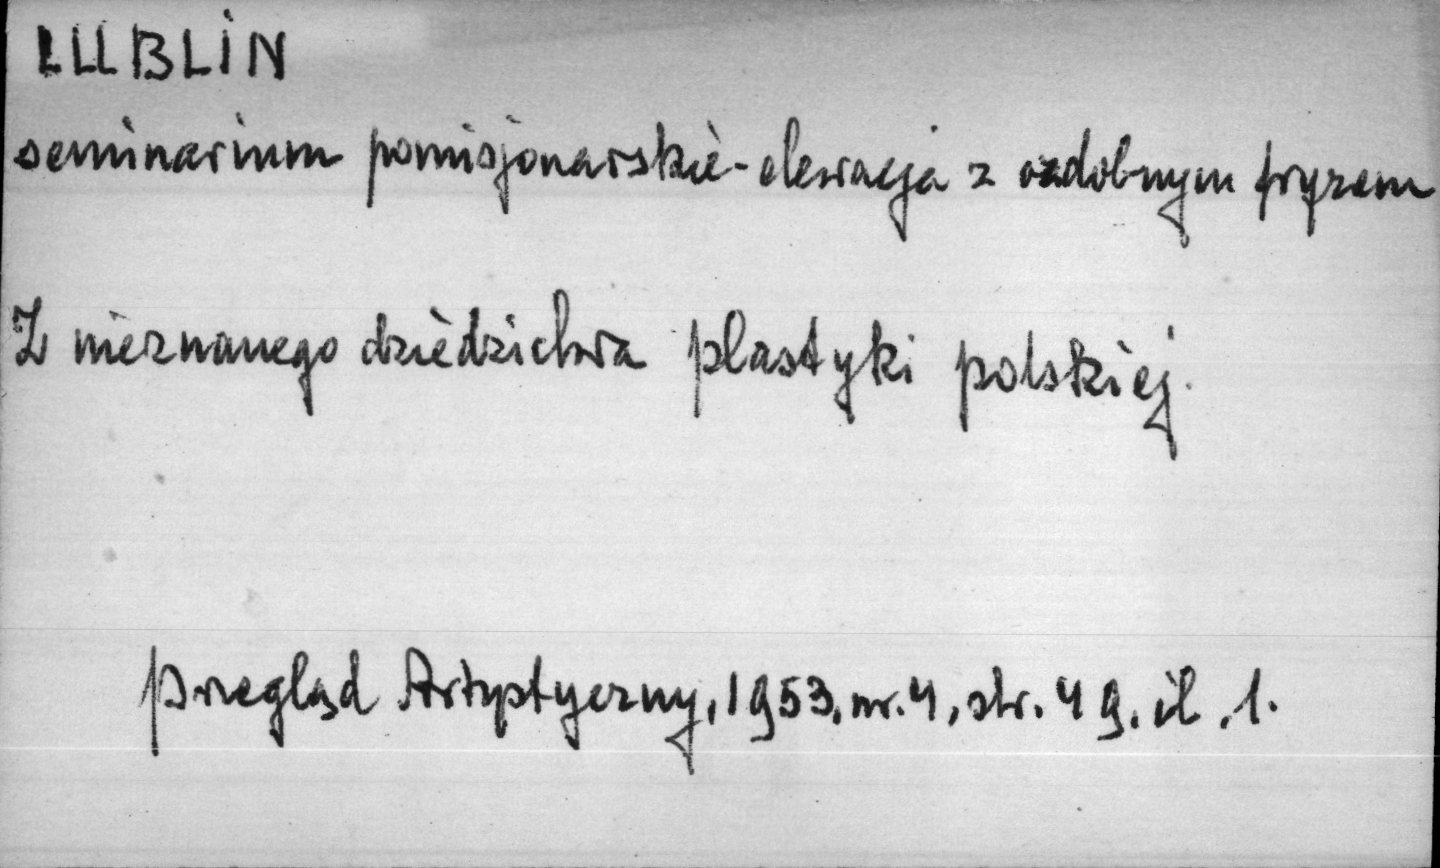 LUBLIN
seminarium pomisjonarskie - elewacja z ozdobnym fryzem
Z nieznanego dziedzictwa plastyki polskiej.
Przegląd Artystyczny, 1953, nr. 4, str. 49, il. 1.